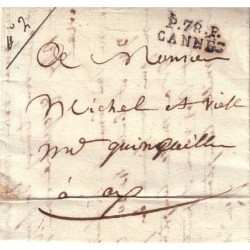 P.78.P.
CANNES
A Monsieur
Michel et
md quinquailler
à aix